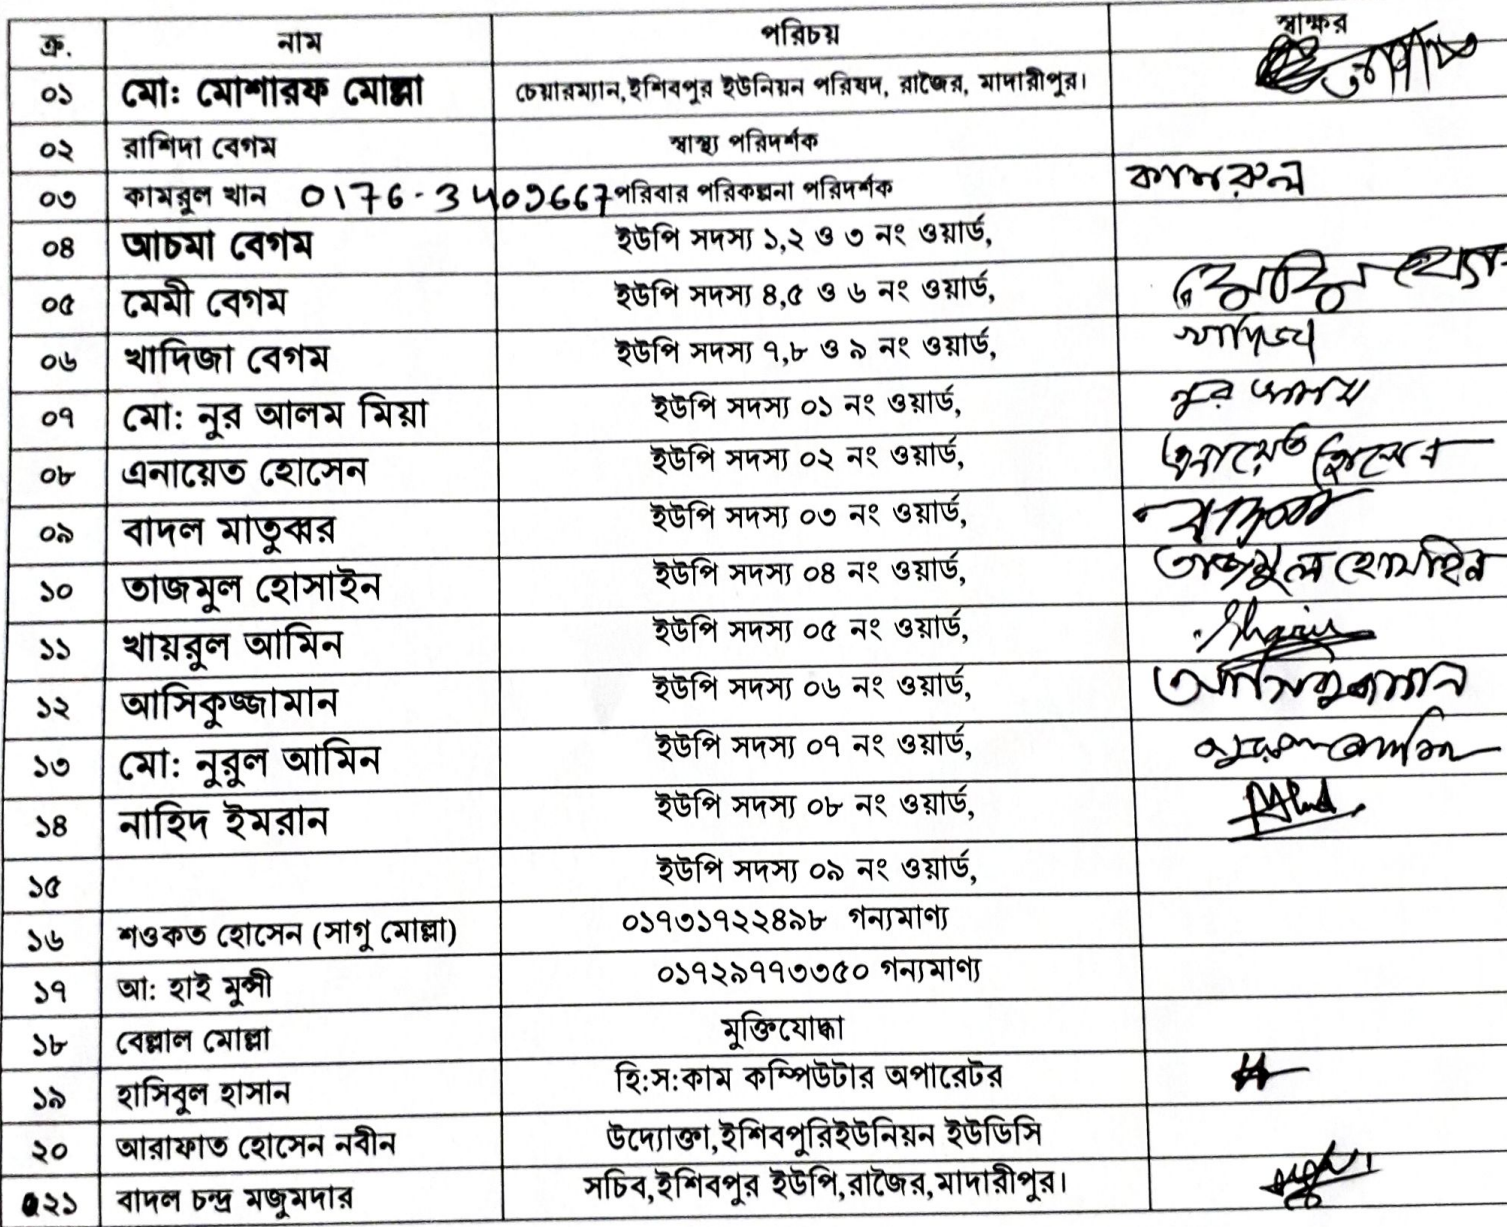 ক্র. নাম পরিচয় স্বাক্ষর
০১ মো: মোশারফ মোল্লা চেয়ারম্যান,ইশিবপুর ইউনিয়ন পরিষদ, রাজৈর, মাদারীপুর।
০২ রাশিদা বেগম স্বাস্থ্য পরিদর্শক
০৩ কামরুল খান পরিবার পরিকল্পনা পরিদর্শক কামরুল
০৪ আচমা বেগম ইউপি সদস্য ১,২ ও ৩ নং ওয়ার্ড,
০৫ মেমী বেগম ইউপি সদস্য ৪,৫ ও ৬ নং ওয়ার্ড,
০৬ খাদিজা বেগম ইউপি সদস্য ৭,৮ ও ৯ নং ওয়ার্ড, খাদিজা
০৭ মো: নুর আলম মিয়া ইউপি সদস্য ০১ নং ওয়ার্ড, নুর আলম
০৮ এনায়েত হোসেন ইউপি সদস্য ০২ নং ওয়ার্ড, এনায়েত হোসেন
০৯ বাদল মাতুব্বর ইউপি সদস্য ০৩ নং ওয়ার্ড,
১০ তাজমুল হোসাইন ইউপি সদস্য ০৪ নং ওয়ার্ড, তাজমুল হোসাইন
১১ খায়রুল আমিন ইউপি সদস্য ০৫ নং ওয়ার্ড,
১২ আসিকুজ্জামান ইউপি সদস্য ০৬ নং ওয়ার্ড,
১৩ মো: নুরুল আমিন ইউপি সদস্য ০৭ নং ওয়ার্ড, নুরুল আমিন
১৪ নাহিদ ইমরান ইউপি সদস্য ০৮ নং ওয়ার্ড,
১৫ ইউপি সদস্য ০৯ নং ওয়ার্ড,
১৬ শওকত হোসেন (সাগু মোল্লা) ০১৭৩১৭২২৪৯৮ গন্যমাণ্য
১৭ আ: হাই মুন্সী ০১৭২৯৭৭৩৩৫০ গন্যমাণ্য
১৮ বেল্লাল মোল্লা মুক্তিযোদ্ধা
১৯ হাসিবুল হাসান হি:স:কাম কম্পিউটার অপারেটর
২০ আরাফাত হোসেন নবীন উদ্যোক্তা,ইশিবপুরিইউনিয়ন ইউডিসি
২১ বাদল চন্দ্র মজুমদার সচিব,ইশিবপুর ইউপি,রাজৈর,মাদারীপুর।